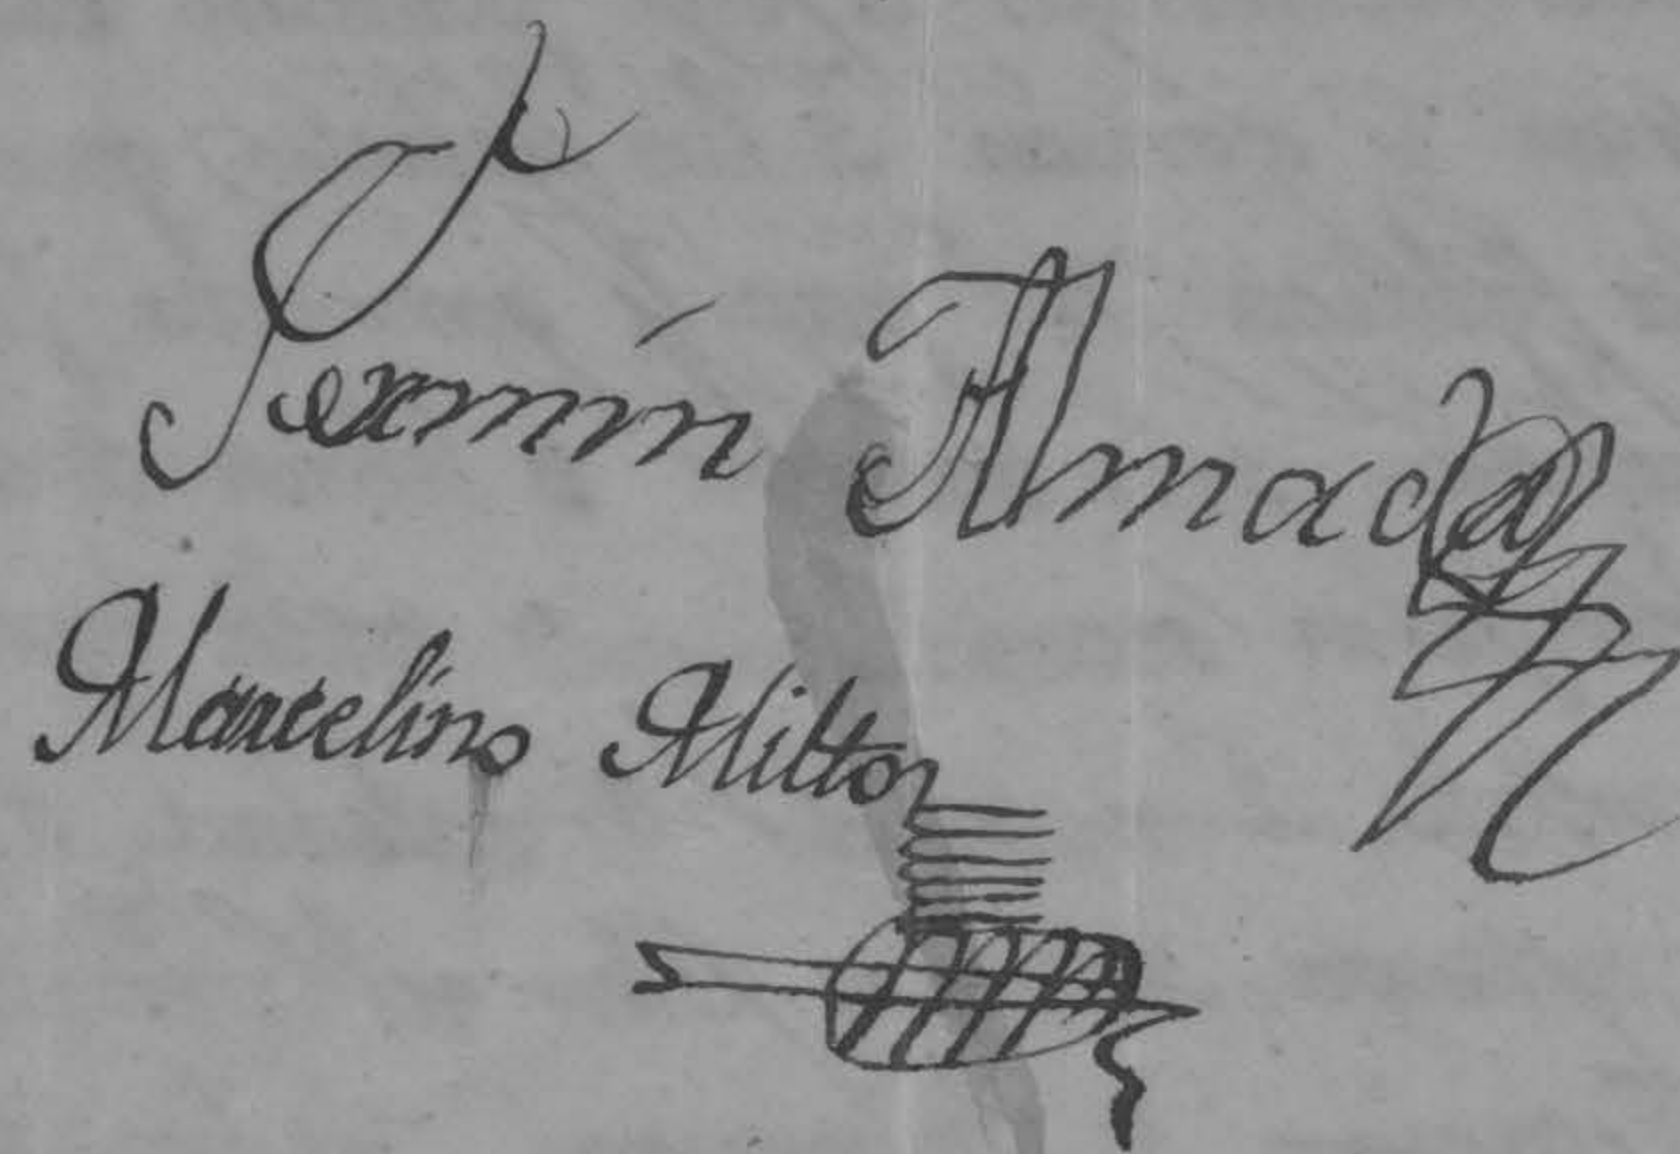 Fermín Almada
Marcelino Milton